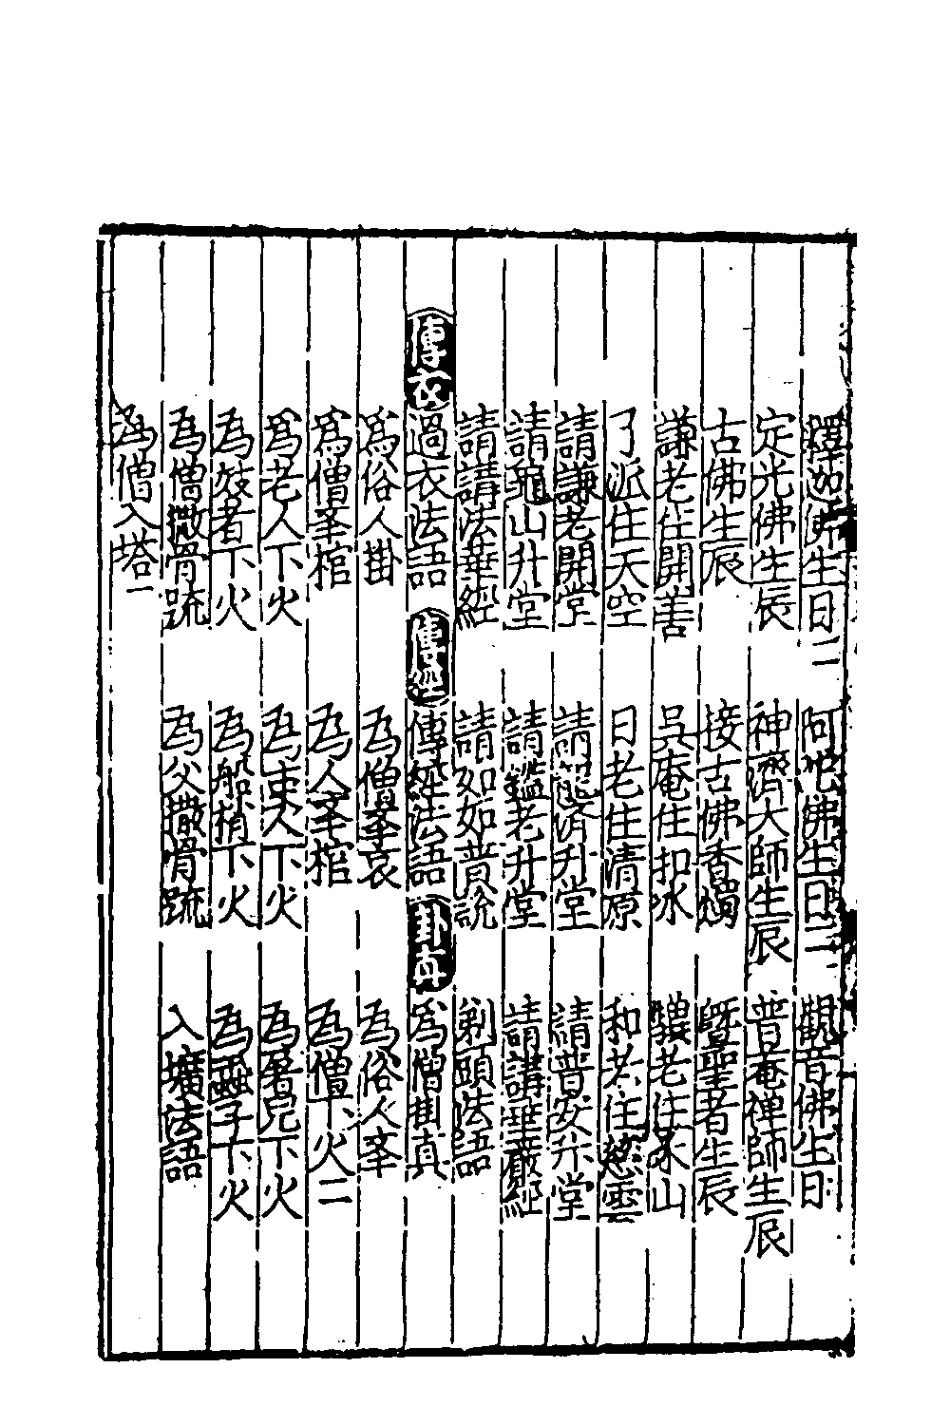 釋迦佛生日二　阿弥佛生日二　觀音佛生日
定光佛生辰　神濟大師生辰　普菴禅師生辰
古佛生辰　接古佛香燭　暨聖者生辰
謙老住開善　吳庵住扣氷　老住山
了派住天空　日老住清原　和老住慈雲
請謙老開堂　請済升堂　請普安升堂
請龜山升堂　請鑑老升堂　請講華嚴經
請講法華經　請如如普說　剃頭法語
傳衣　過衣法語　傳經　傳經法語　掛真　為僧掛真
為俗人掛　為僧舉哀　為俗人舉
為僧舉棺　為人舉棺　為僧下火二
為老人下火　為吏人下火　為暑兒下火
為妓者下火　為船梢下火　為子下火
為僧撒骨䟽　為父撒骨䟽　入壙法語
為僧入塔一